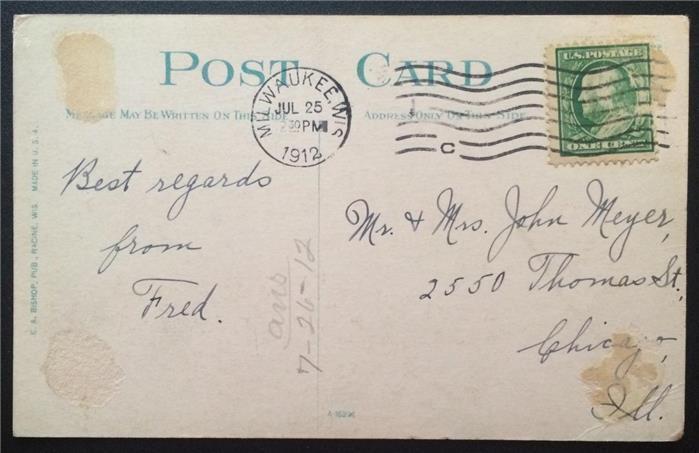 POST CARD
MESSAGE MAY BE WRITTEN ON THIS SIDE
ADDRESS ONLY ON THIS SIDE
MILWAUKEE, WIS
JUL 25
2 30 PM
1912
C
U.S. POSTAGE
ONE CENT
Best regards
from
Fred.
ans
7-26-12
Mr. & Mrs. John Meyer,
2550 Thomas St.,
Chicago,
Ill.
E. A. BISHOP, PUB., RACINE, WIS. MADE IN U.S.A.